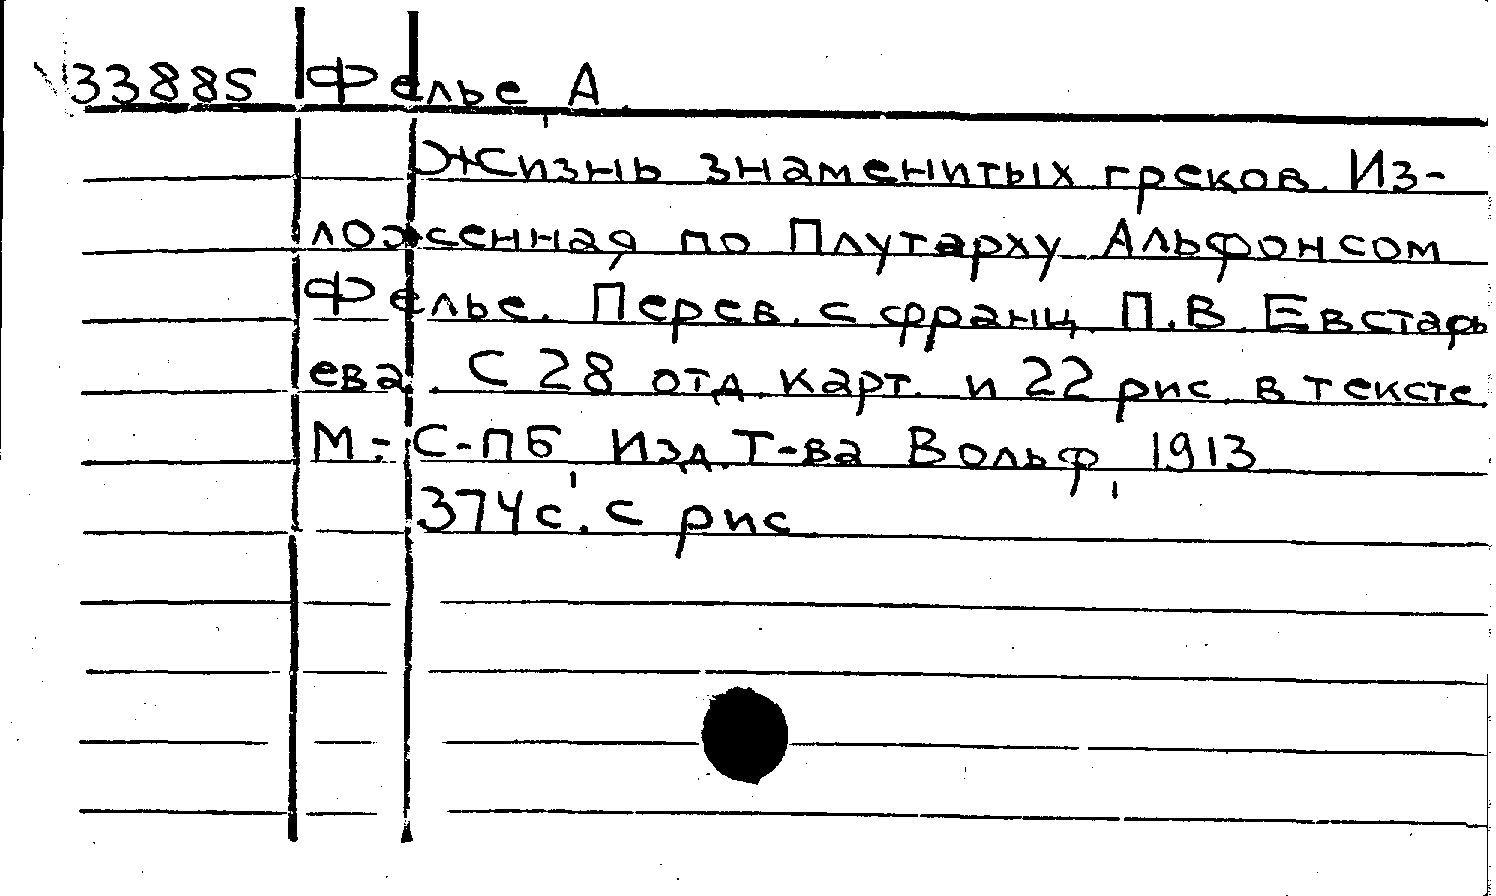 33885 Фелье, А.
Жизнь знаменитых греков. Из-
ложенная по Плутарху Альфонсом
Фелье. Перев. с франц. П.В. Евстафь
ева. С 28 отд. карт. и 22 рис. в тексте
М.- С-ПБ, Изд. Т-ва Вольф, 1913
374с. с рис